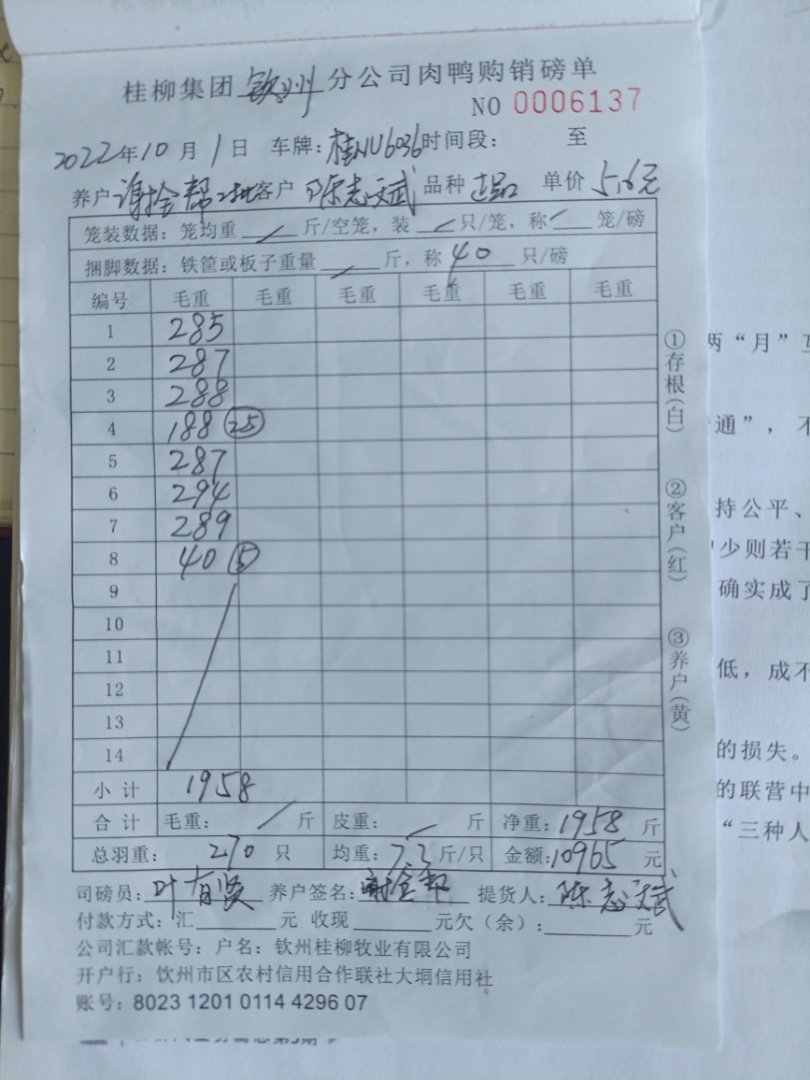 桂柳集团 钦州 分公司肉鸭购销磅单
NO 0006137
2022年10月1日 车牌：桂NU6036 时间段： 至
养户 谢拾帮 客户 陈志斌 品种 正品 单价 5.6元
笼装数据：笼均重 / 斤/空笼，装 / 只/笼，称 / 笼/磅
捆脚数据：铁筐或板子重量 / 斤，称 40 只/磅
编号 毛重 毛重 毛重 毛重 毛重 毛重
1 285
2 287
3 288
4 188 (25)
5 287
6 294
7 289
8 40 (5)
9
10
11
12
13
14
小计 1958
合计 毛重： / 斤 皮重： / 斤 净重：1958 斤
总羽重： 270 只 均重：7.3 斤/只 金额：10965 元
司磅员：叶有贤 养户签名：谢拾帮 提货人：陈志斌
付款方式：汇 元 收现 元欠（余）： 元
公司汇款帐号：户名：钦州桂柳牧业有限公司
开户行：钦州市区农村信用合作联社大垌信用社
账号：8023 1201 0114 4296 07
①存根(白)
②客户(红)
③养户(黄)
两“月”
通”，不
持公平、
少则若干
确实成了
低，成不
的损失。
的联营中
“三种人